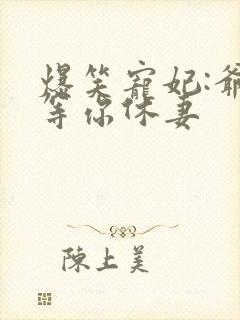 爆笑寵妃:爺
等你休妻
陳上美